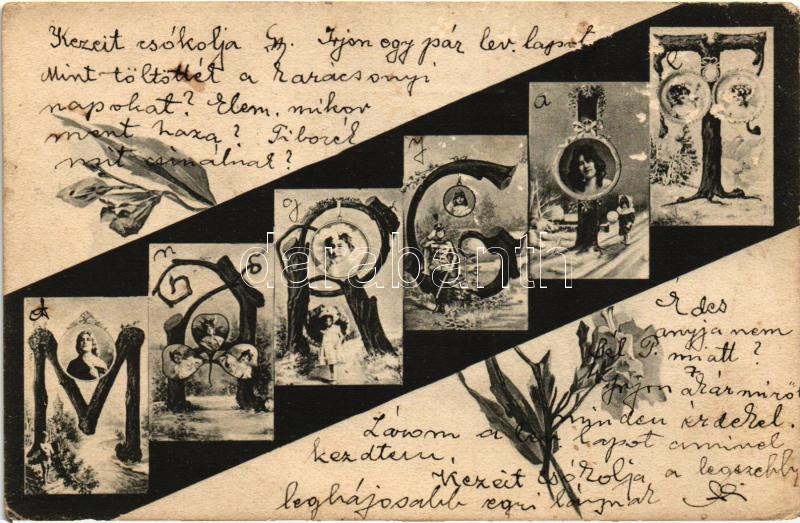 Kezeit csókolja Irjon egy pár lev. lapot
Mint töltöttét a karacsonyi
napokat? Elem. mikor
ment haza? Tiborék
mit csinálnak?
MARGIT
darabanth
Édes
anyja nem
P. miatt?
Irjon akármiről
minden érdekel.
Zárom a lev lapot amivel
kezdtem.
Kezeit csókolja a legszebb
legbájosabb egri lánynak